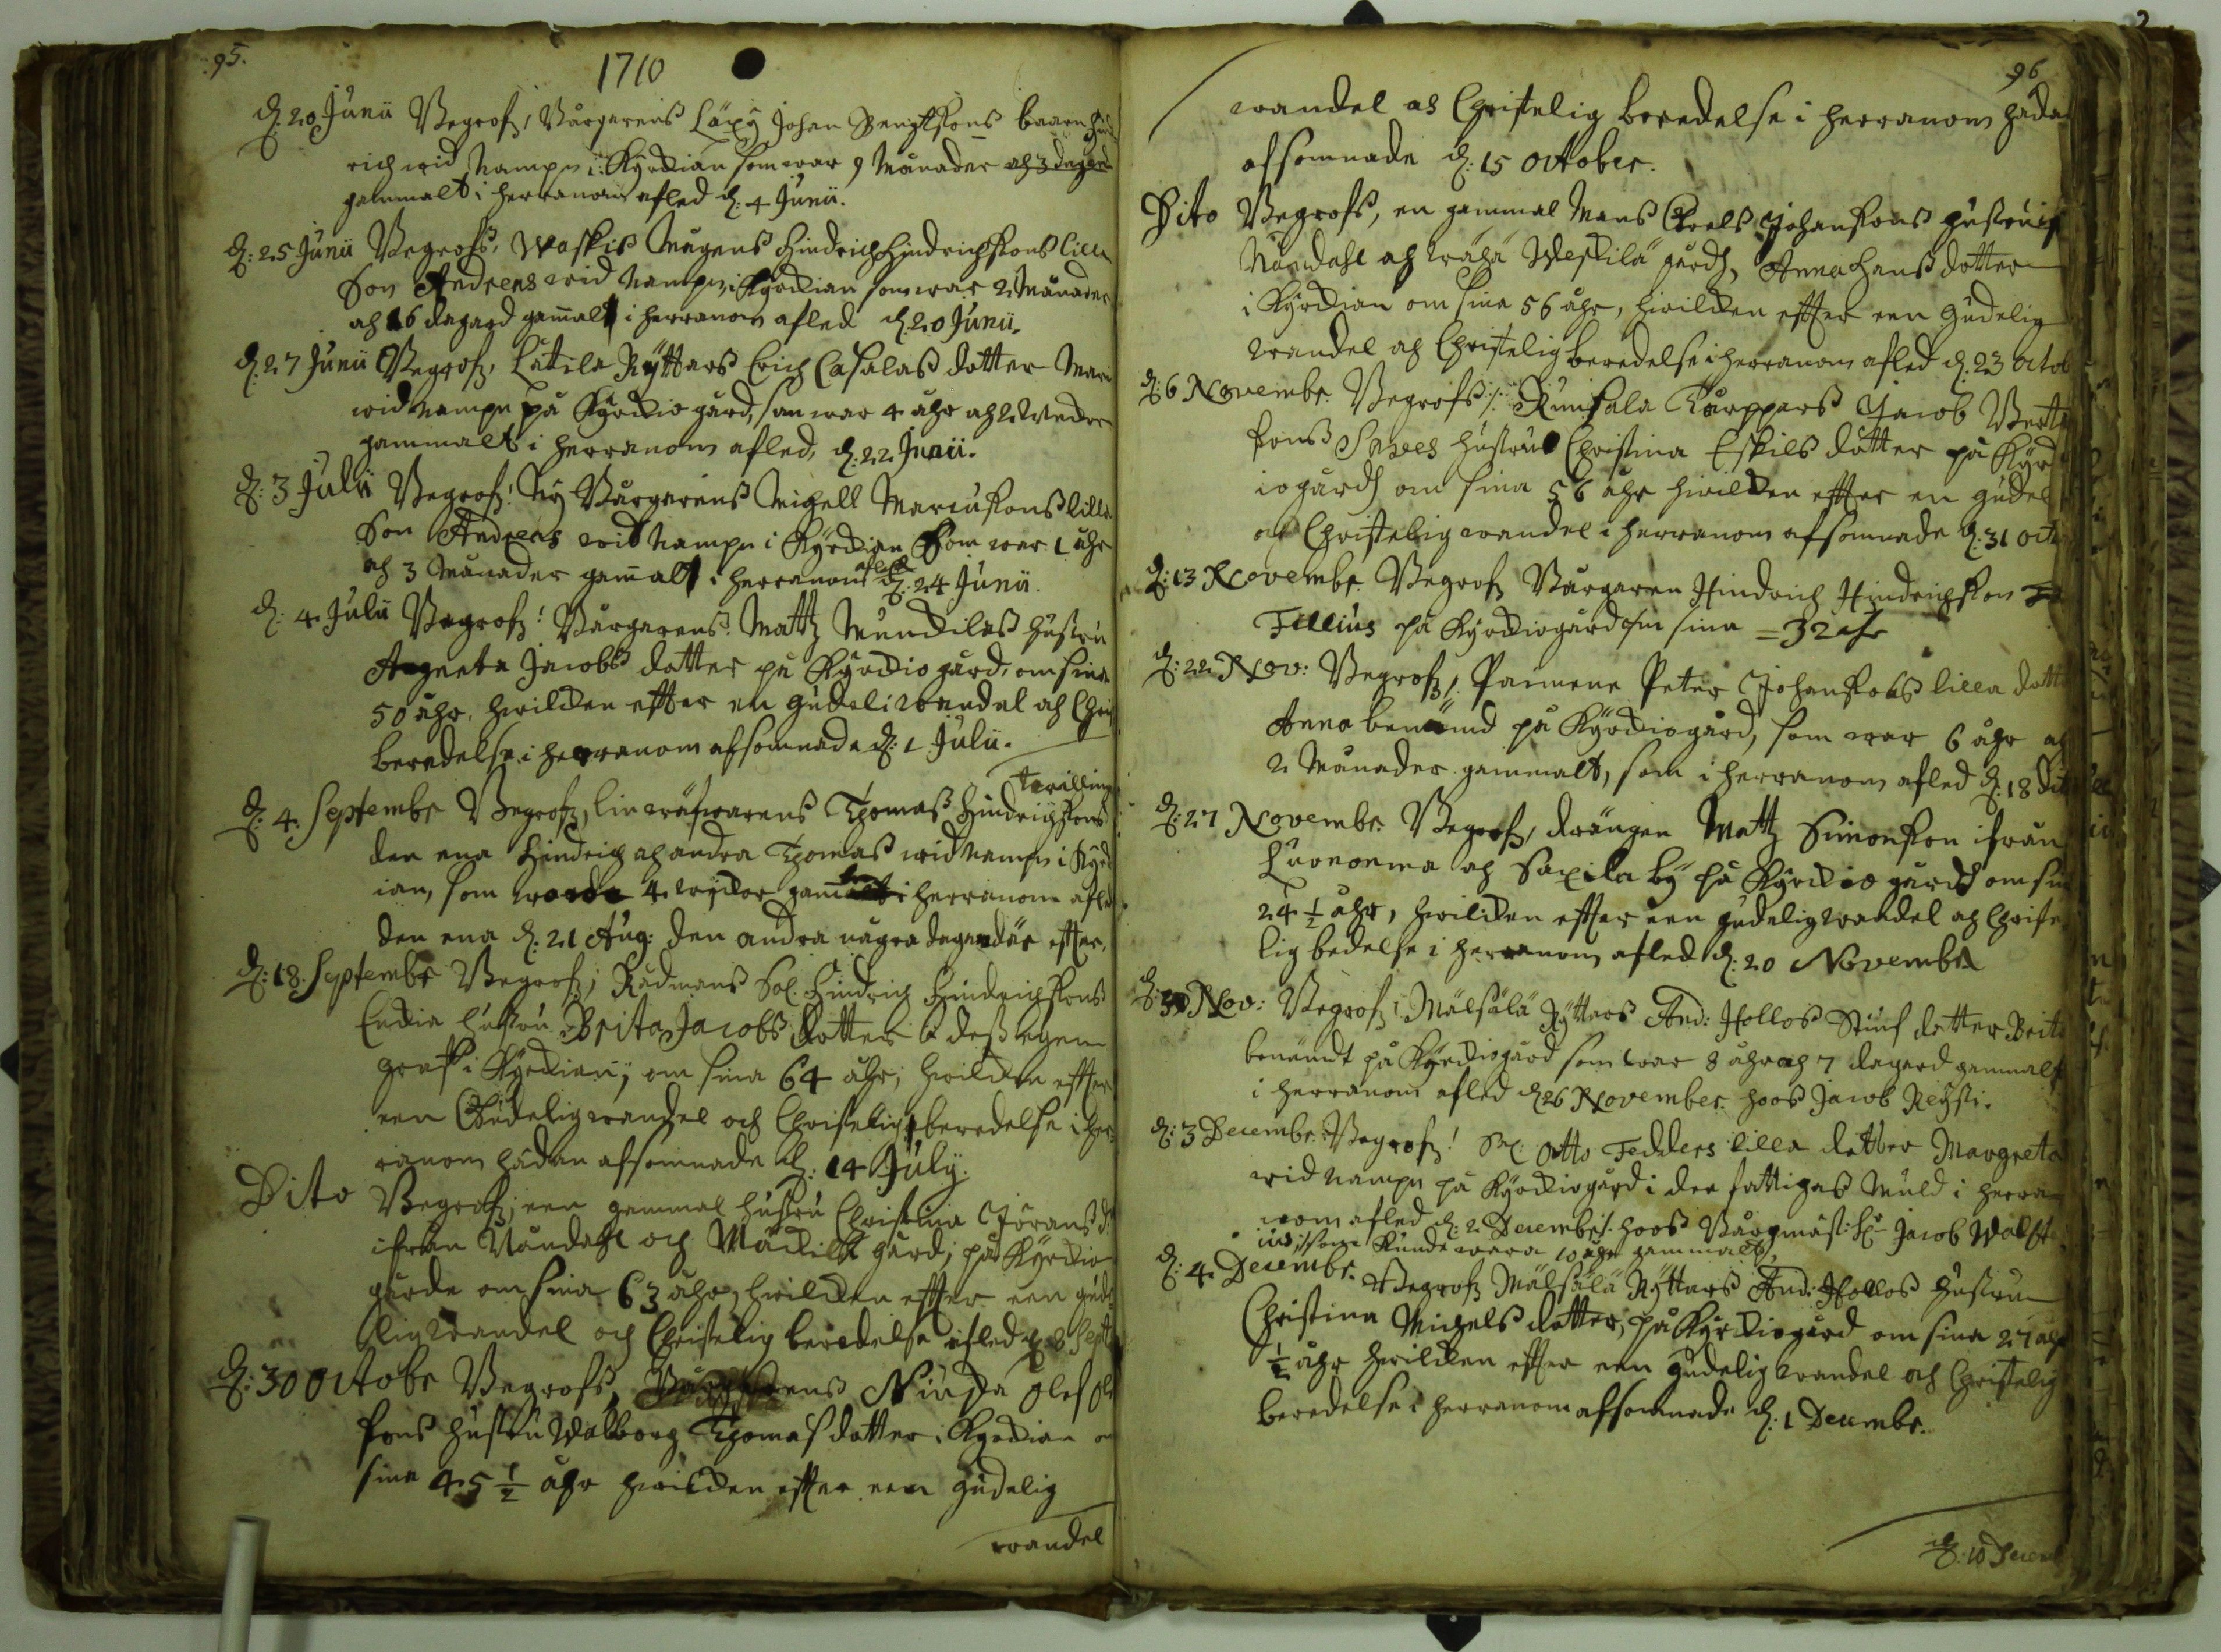 95.
1710
d: 20 Junii Begrofz, Bårgarens Läxy Johan Bengtsons baarn Hind
rich wid Nampn i Kyrckian som war 9 Månader och 3 dagard
gammalt i herranom afled d: 4 Junii.
d: 25 Junii Begrofs, Waskis Mågens Hindrich Hindrichssons lilla
Son Andreas wid Nampn, i Kyrckian som war 2 Månader
och 16 dagard gamalt i herranom afled d 20 Junii.
d. 27 Junii Begrofz, Lätila Ryttars Erich Casalas dotter Mari
wid Nampn på Kyrckio gård, som war 4 åhr och 2 Wecker
gammalt i herranom afled, d: 22 Junii.
d: 3 Julii Begrofz! Ny Bårgarens Michell Marcussons lilla
Son Andreas wid Nampn i Kyrckian Som war 1 åhr
och 3 Månader gamalt i herranom afled d: 24 Junii.
d: 4. Julii Begrofz! Bårgarens Mattz Munckilas hustru
Angneta Jacobs dotter på Kyrckio gård, om sina
50 åhr. hwilcken effter en gudeli wandel och Chri
beredelse i herranom afsomnade d: 1 Julii.
twilling
d: 4. Septembr Begrofz, linwäfwarens Thomas Hindrichsons
den ena Hindrich och andra Thomas wid Nampn i Kyrck
ian, som worde 4 wyckor gam i herranom afled
den ena d: 21 Aug: den andra några dagar där effter.
d: 18. Septembr Begrofz; Rådmans Sal: Hindrich Hindrichsons
Enckia hustru Brita Jacobs dotter i dess egen
graf i Kyrckian; om sina 64 åhr; hwilcken effter
een Gudelig wandel och Christelig beredelse i her
ranom hädan afsomnade d: 14 July.
Dito Begrofz; een gammal hustru Christina Jörans d:
ifrån Nåndahl och gård; på Kyrckio
gårde om sina 63 åhr, hwilcken effter een gude
lig wandel och Christelig beredelse afled d: 8 Sept
d: 30 Octobr Begrofs, Olef Ole
sons hustru Walborg Thomas dotter i Kyrckian om
sina 45 1/2 åhr hwilcken effter een gudelig
wandel
96
wandel och Christelig beredelse i herranom hädan
afsomnade d: 15 October.
Dito Begrofs, en gammal Mans Johansons hustru if
Nåndahl och gård, Anna Hans dotter
i Kyrckian om sina 56 åhr, hwilcken effter een Gudelig
wandel och Christelig beredelse i herranom afled d. 23 Octob
d: 6 Novembr. Begrofs /: Runsala Jacob Bertt
sons hustru Christina Eskils dotter på Kyrck
iogård om sina 56 åhr hwilcken effter en gudel
och Christelig wandel i herranom afsomnade d: 31 Oct
d: 13 Novembr. Begrofz Bårgaren Hindrich Hindrichson
Fillius på Kyrckiogård om sina = 32 åhr
d: 22 Nov: Begrofz, Peter Johansons lilla dott
Anna benämd på Kyrckiogård, som war 6 åhr och
2 Månader gammalt, som i herranom afled d: 18 Dit
d: 27 Novembr. Begrofz, drängen Mattz Simonson ifrån
Luonnonma och Saxila by på Kyrckio gård om sin
24 1/2 åhr, hwilcken effter een gudelig wandel och Christe
lig bedelse i herranom afled d: 20 Novembr
d: Nov: Begrofz! Mälsälä Ryttars And: Hollos Stiuf dotter Brita
benämdt på Kyrckiogård som war 8 åhr och 7 dagard gammalt
i herranom afled d 26 November. hoos Jacob
d: 3 Decembr. Begrofz! Sal: Otto Fedders lilla dotter Margreta
wid Nampn på Kyrckiogård i dee fattigas Muld i herra
nom afled d: 2 Decembr. hoos Borgmäst: Hr Jacob Walst
ius, som kunde wara 10 åhr gammalt.
d: 4. Decembr. Begrofz Mälsälä Ryttars And: Hollos hustru
Christina Michels dotter, på Kyrckiogård om sina 27 åhr
1/2 åhr hwilcken effter een gudelig wandel och Christelig
beredelse i herranom afsomnade d. 1 Decembr.
d: 10 Decem